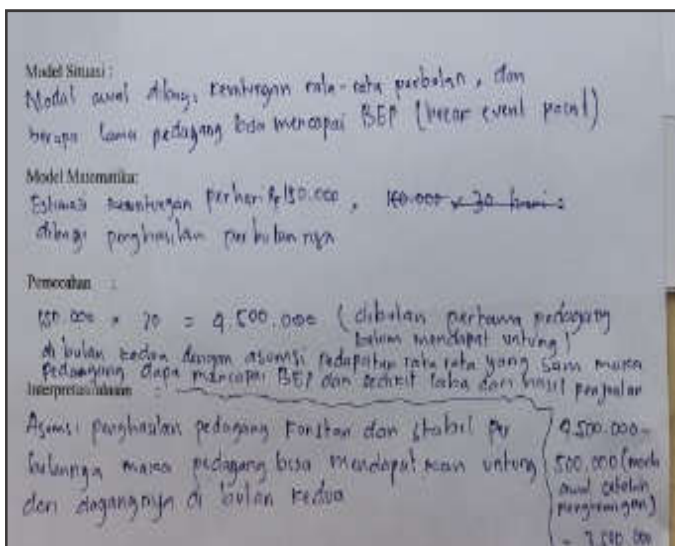 Model Situasi :
Modal awal dibagi keuntungan rata-rata perbulan, dan
berapa lama pedagang bisa mencapai BEP (brear event point)
Model Matematika:
Estimasi keuntungan perhari Rp 150.000, 160.000 x 30 hari =
dibagi penghasilan perbulannya
Pemecahan :
150.000 x 30 = 4.500.000 (dibulan pertama pedagang
belum mendapat untung)
di bulan kedua dengan asumsi pedapatan rata rata yang sam maka
pedangang dapa mencapai BEP dan sedikit laba dari hasil penjualan
Interpretasi/ulasan :
Asumsi penghasilan pedagang konstan dan stabil per
bulannya maka pedagang bisa mendapatkan untung
dari dagangnya di bulan kedua
500.000 (modal
awal sebelum